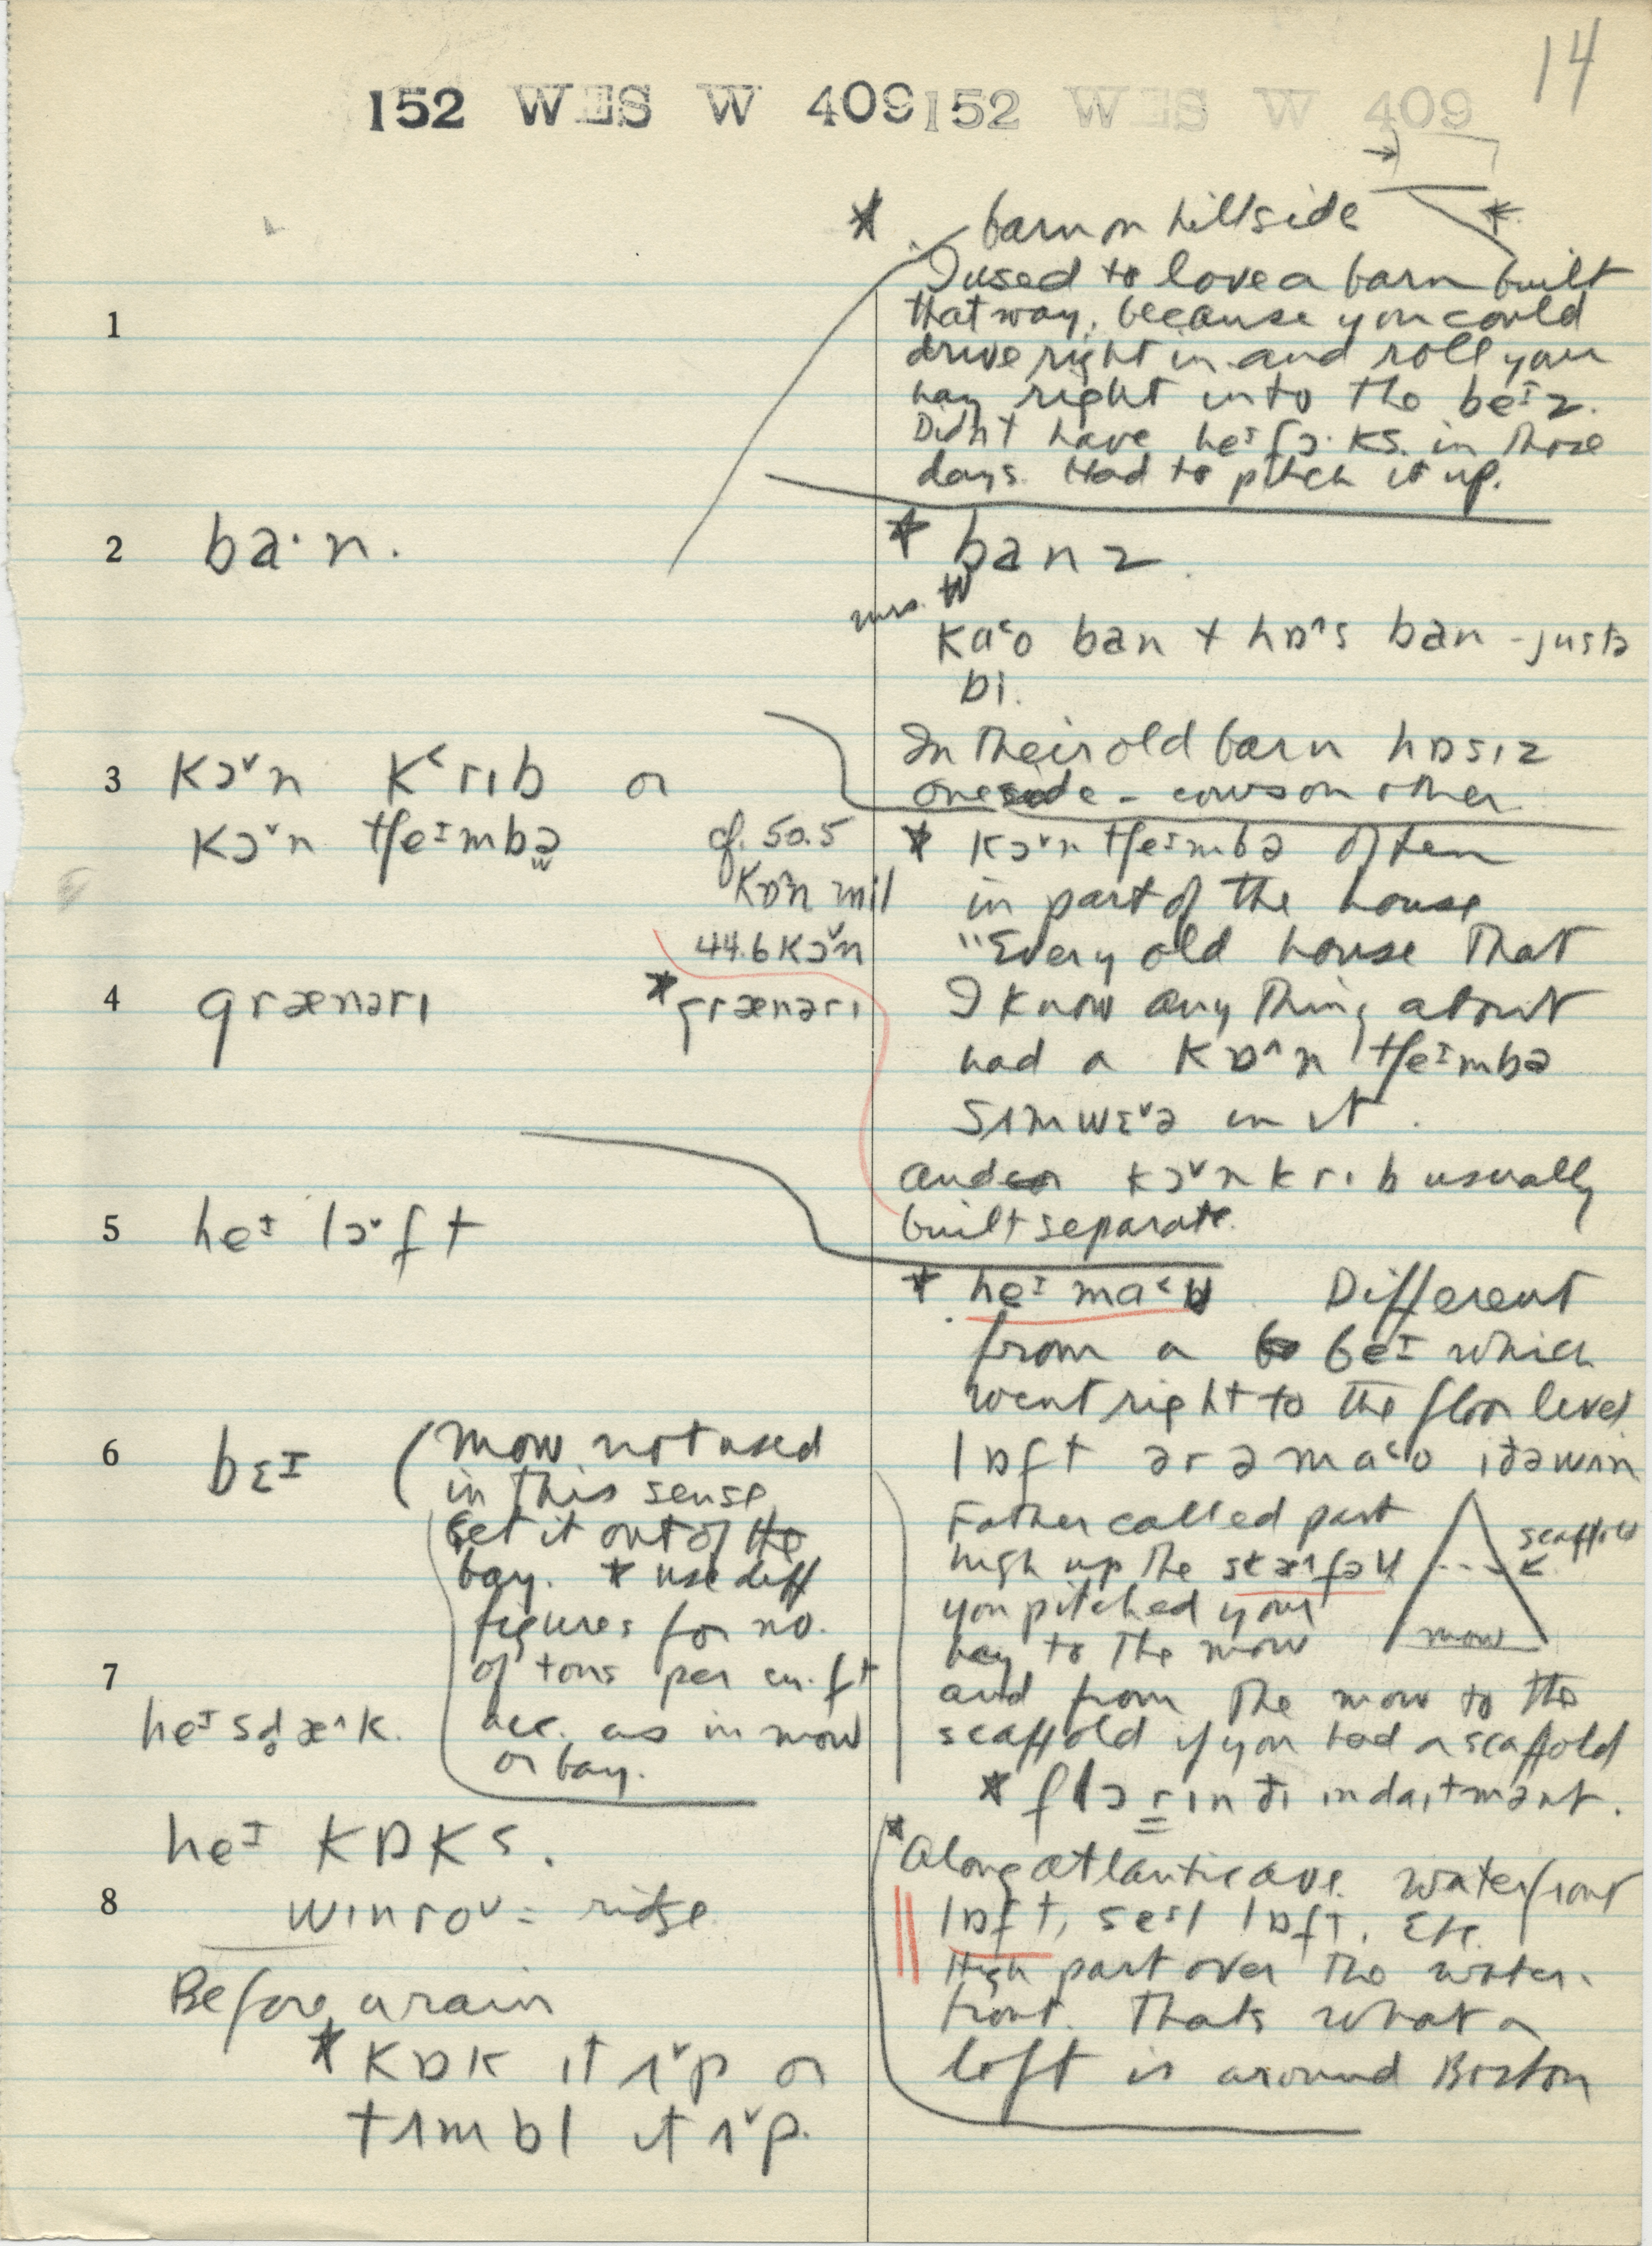 14
152 WES W 409 152 WES W 409
* barn on hillside
I used to love a barn built
1
that way, because you could
drive right in and roll your
hay right into the beɪz.
Didn't have heɪ fɔ·ks in those
days. Had to pitch it up.
2 ba·n.
* banz.
Mrs. W
kɑ˂o ban + hɒ˄s ban - just a
bi.
In their old barn hɒsɪz
one side - cows on other.
3 kɔ˅n k˂rɪb or
kɔ˅n tʃeɪmbə
cf. 50.5
kɒ˄n mil
44.6 kɔ˅n
* kɔ˅n tʃeɪmbə often
in part of the house
"Every old house that
I know anything about
had a kɒ˄n tʃeɪmbə
sʌmwɛ˅ə in it.
and kɔ˅n krɪb usually
built separate.
4 grænərɪ
* grænərɪ
5 heɪ lɔ˅ft
* heɪ ma˂ʊ Different
from a beɪ which
went right to the floor level
lɒft ər ə ma˂o
6 bɛɪ (mow not used
in this sense
Get it out of the
bay. * use diff
figures for no.
of tons per cu. ft
acc. as in mow
or bay.
Father called part
high up the skæ˄fəʊ
you pitched your
hay to the mow
and from the mow to the
scaffold if you had a scaffold
scaffold
mow
7
heɪ sd̥æ˄k.
* flɔr ɪn ði
heɪ kɒks.
8 wɪnro˅ = ridge
Before a rain
* kɒk ɪt ʌ˅p or
tʌmbl ɪt ʌ˅p.
* Along Atlantic ave. waterfront
lɒft, se˂l lɒft, etc.
High part over the water-
front. Thats what a
loft is around Boston